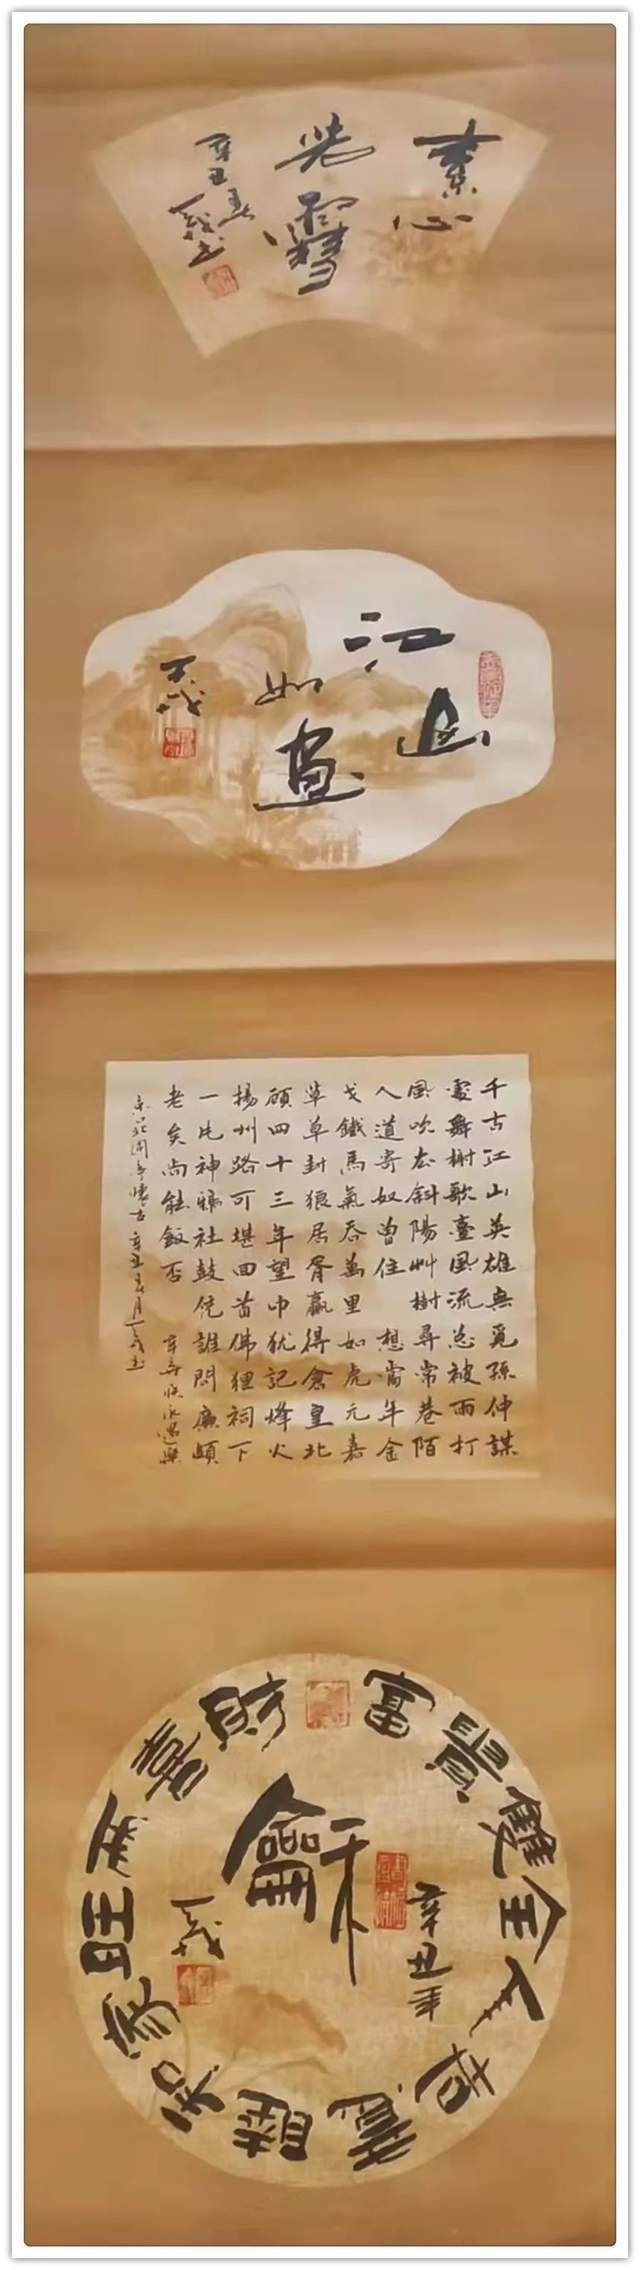 素心
雪
辛丑春
江山
如畫
千古江山英雄無覓孫仲謀
處舞榭歌臺風流总被雨打
風吹去斜陽艸樹尋常巷陌
人道寄奴曾住 想當年金
戈鐵馬氣吞萬里如虎元嘉
草草封狼居胥贏得倉皇北
顾四十三年望中犹記烽火
揚州路可堪回首佛狸祠下
一片神鴉社鼓凭誰問廉頗
老矣尚能飯否 辛弃疾永遇樂
京口北固亭懷古 辛丑春月
富貴雙全人吉慶
財喜兩旺家和睦
龢
辛丑年